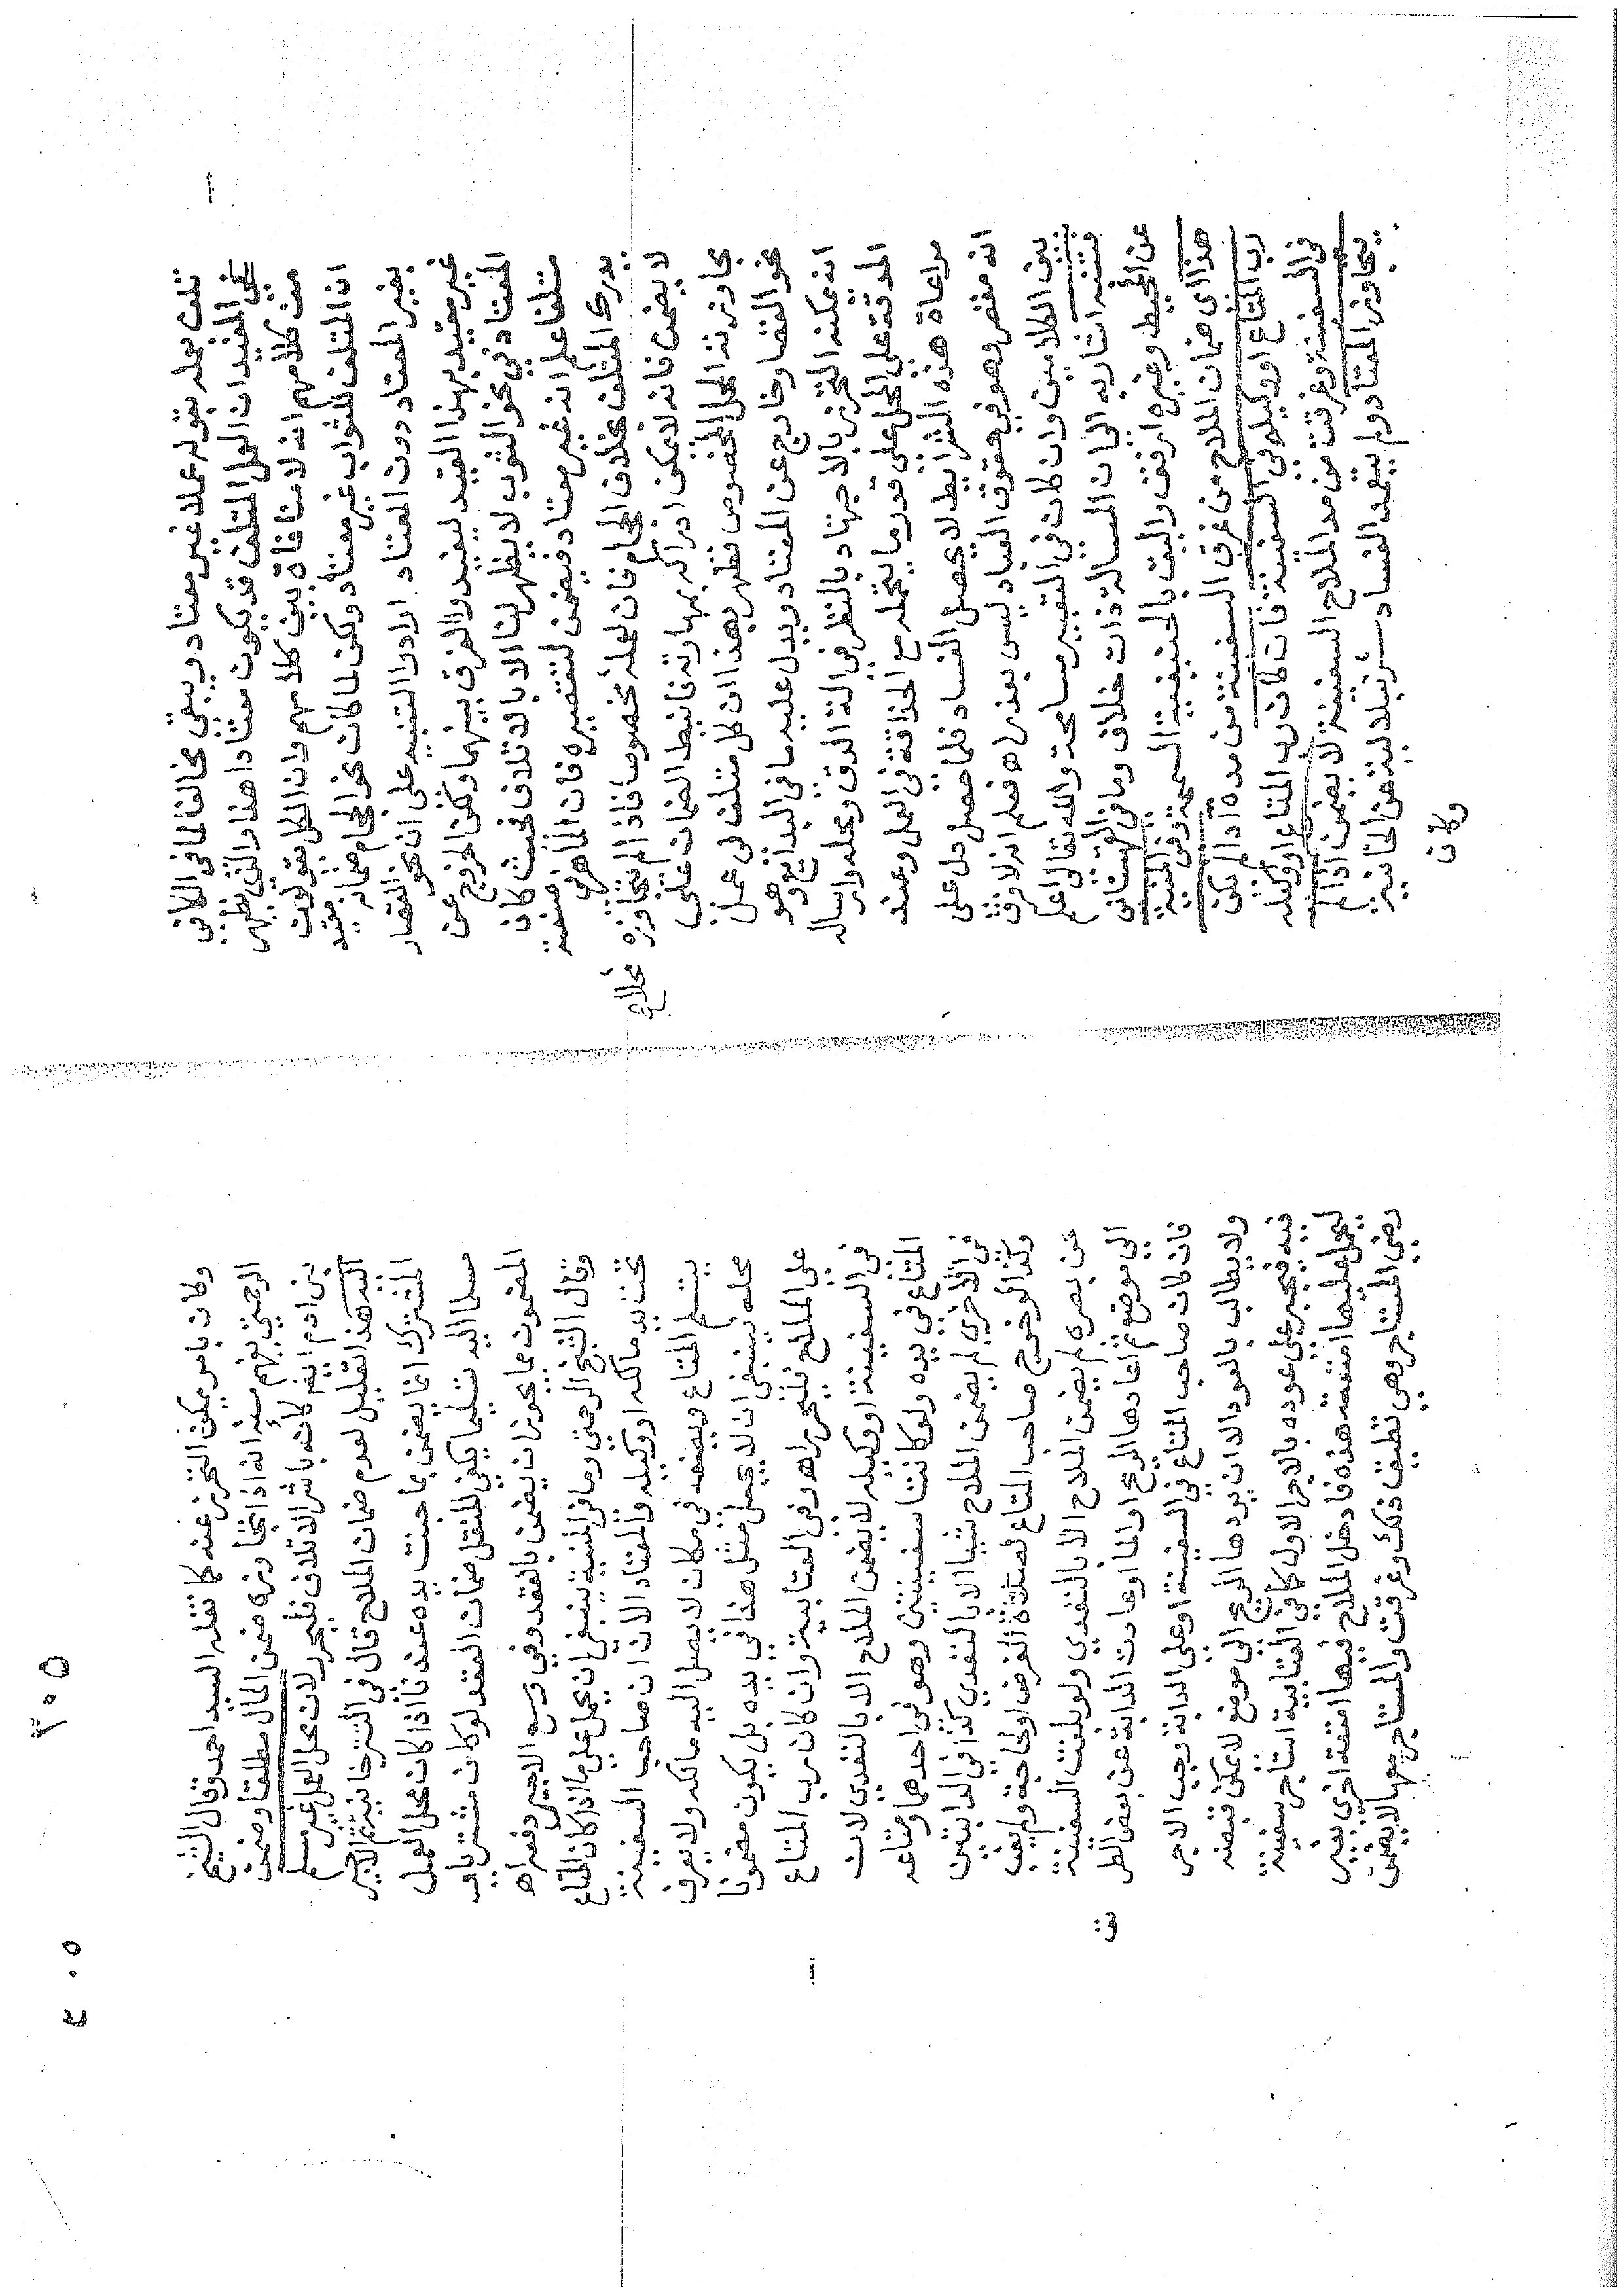 تلف بعمله بقوله عملا غير معتاد ويبقى مخالفا لما في الكافي
يجي المفيد ان العمل المتلف قد يكون معتادا هذا والذي يظهر
من كلامهم انه لا منافاة بين كلامهم وان الكل يقولون
ان المتلف للثواب غير معتاد ولكن لما كان نحو الحجام ضمانه مقيد
بغير المعتاد دون المعتاد ارادوا التنبيه على ان نحو القصار
غير مقيد بهذا القيد ليفيدوا الفرق بينهما ولكن الخروج عن
المعتاد في نحو الثوب لا يظهر لنا الا بالاتلاف فحيث كان
متلفا علم انه غير معتاد فيضمن لتقصيره فان الماهر في صنعته
يدرك المتلف بخلاف الحجام فان لعمله مخصوصا فاذا لم يتجاوزه
لا يضمن فانه لا يمكن ادراكه بمهارته فانيط الضمان على
مجاوزته المحل المخصوص فظهر بهذا ان كل متلف في عمل
نحو القصار خارج عن المعتاد ويدل عليه ما في البدائع وهو
انه يمكنه التحرز بالاجتهاد بالنظر في الة الدق ومحله وارساله
المدقة على المحل على قدر ما يتحمله مع الحذاقة في العمل وعند
مراعاة هذه الشرايط لا يحصل الفساد فلما حصل دل على
انه مقصر وهو في حقوق العباد ليس بعذر اه فعلم انه لا فرق
بين الكلامين وان كان في التعبير مسامحة والله تعالى اعلم
فتنبه اشار به الى ان المسالة ذات خلاف وما في القهستاني
عن المحيط وغيره ارفق واليق بالحنيفية السمحة وفي المنية
هذا اي ضمان الملاح من غرق السفينة من مده اذا لم يكن
رب المتاع او وكيله في السفينة فان كان رب المتاع او وكيله
في السفينة وغرقت من مد الملاح السفينة لا يضمن اذا لم
يتجاوز المعتاد ولم يتعمد الفساد شرنبلالية عن الخانية
وكان
٢٠٥
٢٠٥
وكان بامر يمكن التحرز عنه كما نقله السيد احمد وقال الشيخ
الرحمتي يفهم منه انه اذا تجاوزه ضمن المال مطلقا وضمن
بني ادم ايضا كانه باشر الاتلاف فليحرر لان محل العمل غير مسلم
اليه هذا تعليل لعدم ضمان الملاح قال في التترخانية ثم الاجير
المشترك انما يضمن بما جنت يده عندنا اذا كان محل العمل
مسلما اليه تسليما يكفي للنقل ضمان العقد لو كان مشتريا و
المضمون مما يجوز ان يضمن بالعقد وفي وسع الاجير دفعه اه
وقال الشيخ الرحمتي وما في المنية ينبغي ان يحمل على ما اذا كان المتاع
تحت يد مالكه او وكيله والمعتاد الان ان صاحب السفينة
يتسلم المتاع ويضعه في مكان لا يصل اليه مالكه ولا يعرف
محله ينبغي ان لا يحمل مثل هذا في يده بل يكون مضمونا
على الملاح فليحرر اه وفي العتابية وان كان رب المتاع
في السفينة او وكيله لا يضمن الملاح الا بالتعدي لان
المتاع في يده ولو كانتا سفينتين وهو في احدهما ومتاعه
في الاخرى لم يضمن الملاح شيئا الا بالتعدي كذا في الدابتين
وكذا لو خرج صاحب المتاع لصلاة الفرض او لحاجة ولم يغب
عن بصره لم يضمن الملاح الا بالتعدي ولو بلغت السفينة
الى موضع ثم اعادها الريح او الماء او عادت الدابة عن بعض الطر
فان كان صاحب المتاع في السفينة او على الدابة وجب الاجر
ولا يطالب بالعود الا ان يردها الريح الى موضع لا يمكن قبضه
فيه فيجبر على عوده بالاجر الاول كما في العتابية استاجر سفينة
ليحمل عليها امتعة هذه فادخل الملاح فيها امتعة اخرى بغير
رضى المستاجر وهي تطيق ذلك وغرقت والمستاجر معها لا يضمن